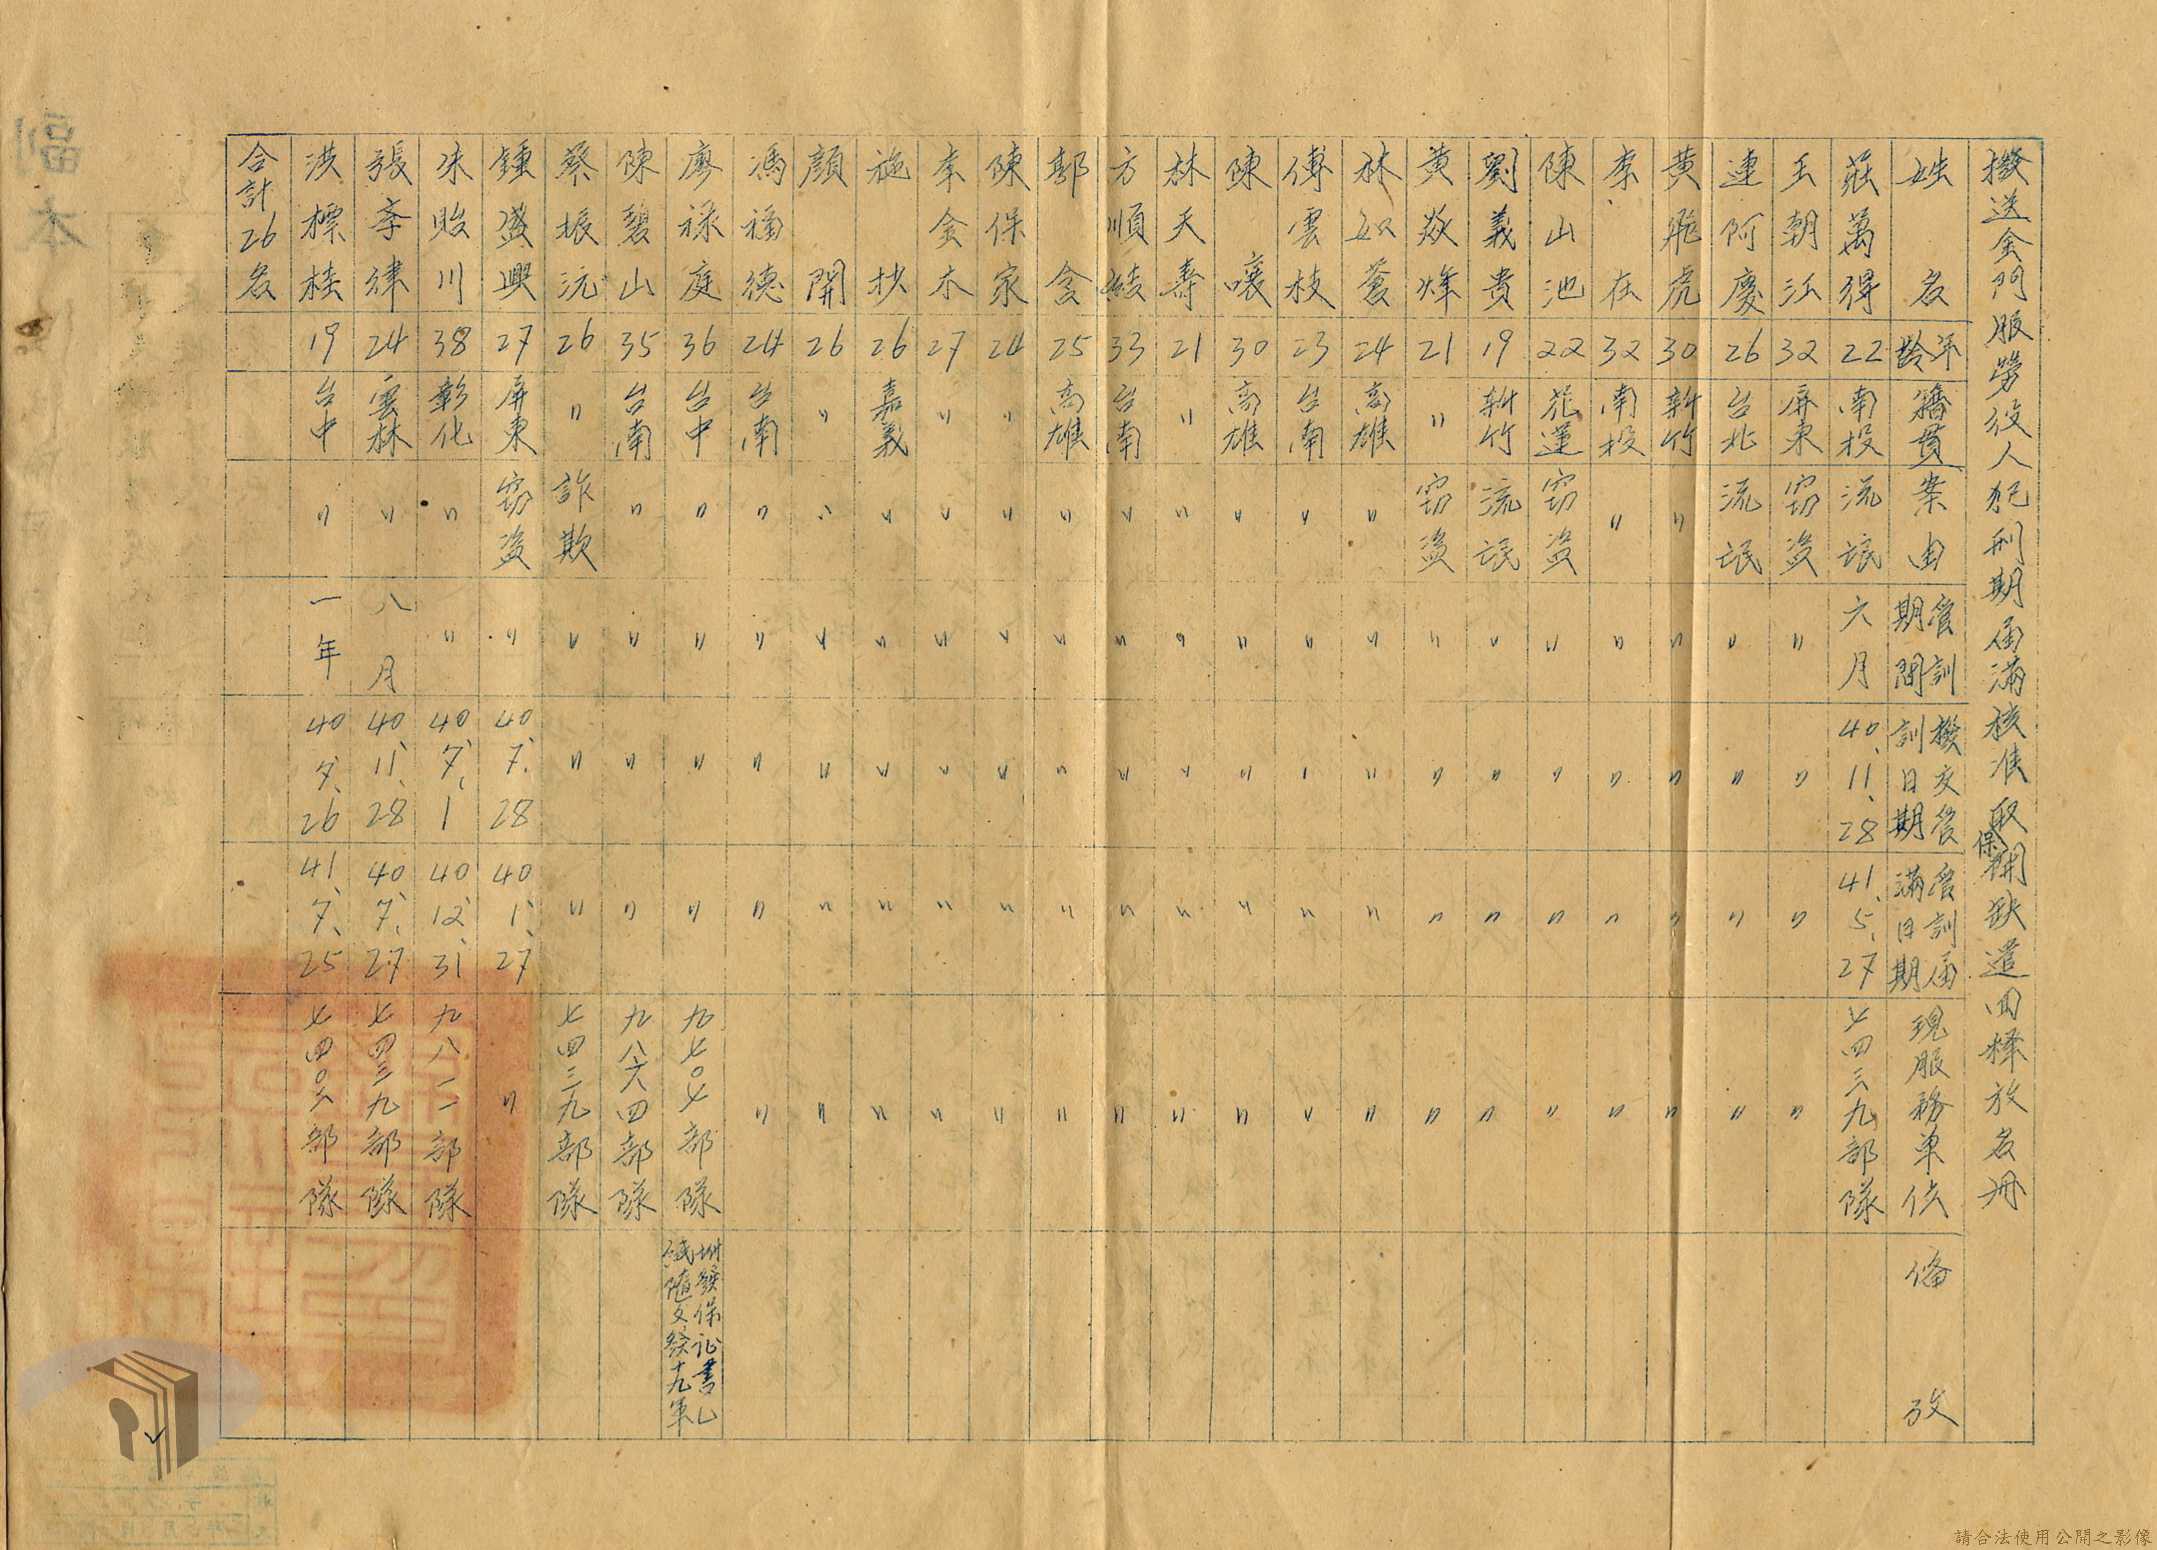 撥送金門服勞役人犯刑期屆滿核准取保開缺遣回釋放名冊
姓名 年齡 籍貫 案由 管訓期間 撥交管訓日期 管訓屆滿日期 現服務單位 備攷
莊萬得 22 南投 流氓 六月 40、11、28 41、5、27 七四三九部隊
王朝江 32 屏東 窃盜 〃 〃 〃 〃
連阿慶 26 台北 流氓 〃 〃 〃 〃
黄飛虎 30 新竹 〃 〃 〃 〃 〃
李在 32 南投 〃 〃 〃 〃 〃
陳山池 22 花蓮 窃盜 〃 〃 〃 〃
劉義貴 19 新竹 流氓 〃 〃 〃 〃
黄燉烽 21 〃 窃盜 〃 〃 〃 〃
林如蒼 24 高雄 〃 〃 〃 〃 〃
傅雲枝 23 台南 〃 〃 〃 〃 〃
陳嚷 30 高雄 〃 〃 〃 〃 〃
林天壽 21 〃 〃 〃 〃 〃 〃
方順 33 台南 〃 〃 〃 〃 〃
郭含 25 高雄 〃 〃 〃 〃 〃
陳保家 24 〃 〃 〃 〃 〃 〃
李金木 27 〃 〃 〃 〃 〃 〃
施扶 26 嘉義 〃 〃 〃 〃 〃
顏開 26 〃 〃 〃 〃 〃 〃
馮福德 24 台南 〃 〃 〃 〃 〃
廖祿庭 36 台中 〃 〃 〃 〃 九七〇七部隊 坿發保証書乙紙隨文發十九軍
陳碧山 35 台南 〃 〃 〃 〃 九八六四部隊
蔡振沅 26 〃 詐欺 〃 〃 〃 七四三九部隊
鍾盛興 27 屏東 窃盜 〃 40、7、28 40、1、27 〃
朱貽川 38 彰化 〃 〃 40、7、1 40、12、31 九八一一部隊
張李律 24 雲林 〃 八月 40、11、28 40、7、27 七四三九部隊
洪標桂 19 台中 〃 一年 40、7、26 41、7、25 七四〇六部隊
合計26名
副本
請合法使用公開之影像